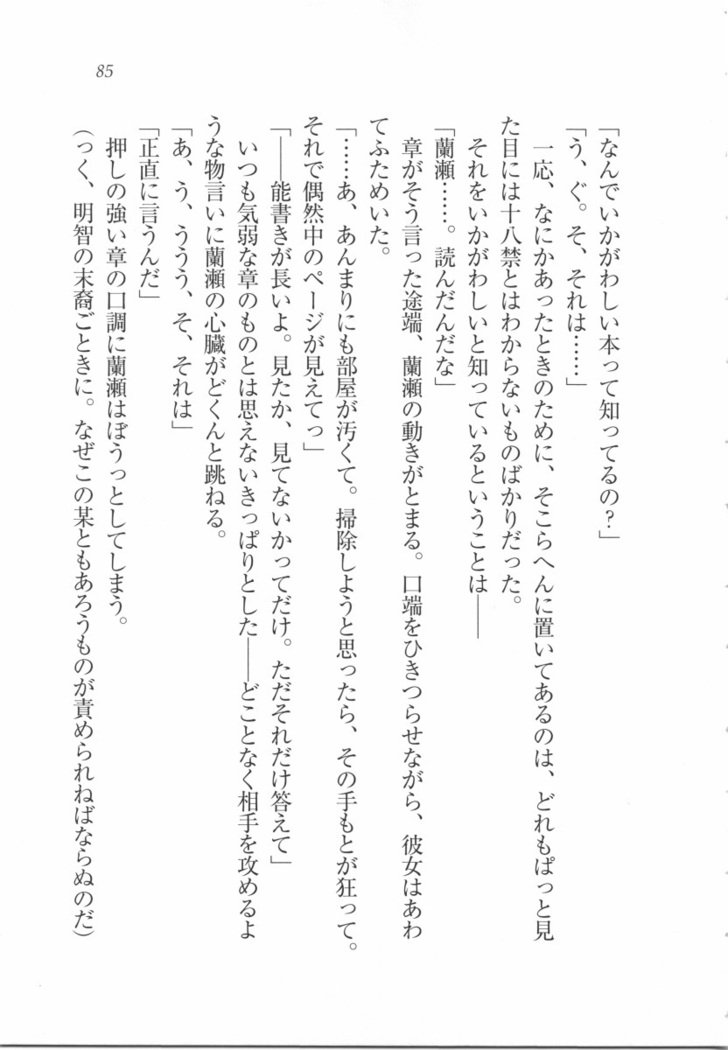 85
「なんでいかがわしい本って知ってるの？」
「う、ぐ。そ、それは……」
一応、なにかあったときのために、そこらへんに置いてあるのは、どれもぱっと見
た目には十八禁とはわからないものばかりだった。
それをいかがわしいと知っているということは――
「蘭瀬……。読んだんだな」
章がそう言った途端、蘭瀬の動きがとまる。口端をひきつらせながら、彼女はあわ
てふためいた。
「……あ、あんまりにも部屋が汚くて。掃除しようと思ったら、その手もとが狂って。
それで偶然中のページが見えてっ」
「――能書きが長いよ。見たか、見てないかってだけ。ただそれだけ答えて」
いつも気弱な章のものとは思えないきっぱりとした――どことなく相手を攻めるよ
うな物言いに蘭瀬の心臓がどくんと跳ねる。
「あ、う、ううう、そ、それは」
「正直に言うんだ」
押しの強い章の口調に蘭瀬はぼうっとしてしまう。
（っく、明智の末裔ごときに。なぜこの某ともあろうものが責められねばならぬのだ）